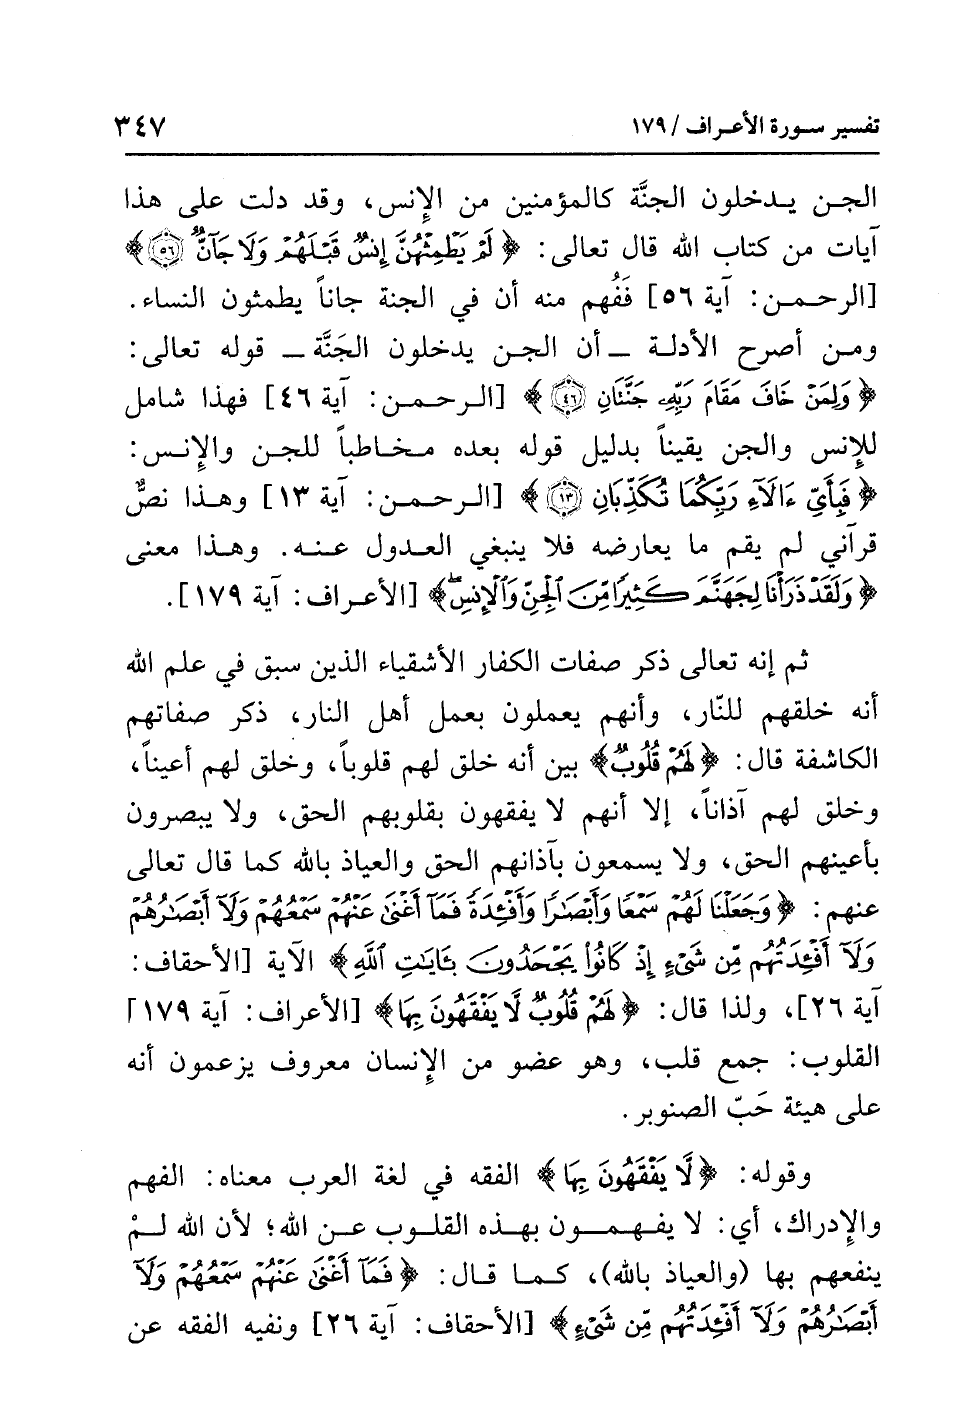 تفسير سورة الأعراف / ١٧٩ ٣٤٧
الجن يدخلون الجنَّة كالمؤمنين من الإِنس، وقد دلت على هذا
آيات من كتاب الله قال تعالى: ﴿لَمْ يَطْمِثْهُنَّ إِنسٌ قَبْلَهُمْ وَلَا جَآنٌّ ۝٥٦﴾
[الرحمن: آية ٥٦] فَفُهم منه أن في الجنة جاناً يطمثون النساء.
ومن أصرح الأدلة ــ أن الجن يدخلون الجَنَّة ــ قوله تعالى:
﴿وَلِمَنْ خَافَ مَقَامَ رَبِّهِۦ جَنَّتَانِ ۝٤٦﴾ [الرحمن: آية ٤٦] فهذا شامل
للإِنس والجن يقيناً بدليل قوله بعده مخاطباً للجن والإِنس:
﴿فَبِأَيِّ ءَالَآءِ رَبِّكُمَا تُكَذِّبَانِ ۝١٣﴾ [الرحمن: آية ١٣] وهذا نصٌّ
قرآني لم يقم ما يعارضه فلا ينبغي العدول عنه. وهذا معنى
﴿وَلَقَدْ ذَرَأْنَا لِجَهَنَّمَ كَثِيرًا مِّنَ ٱلْجِنِّ وَٱلْإِنسِۖ﴾ [الأعراف: آية ١٧٩].
ثم إنه تعالى ذكر صفات الكفار الأشقياء الذين سبق في علم الله
أنه خلقهم للنّار، وأنهم يعملون بعمل أهل النار، ذكر صفاتهم
الكاشفة قال: ﴿لَهُمْ قُلُوبٌ﴾ بين أنه خلق لهم قلوباً، وخلق لهم أعيناً،
وخلق لهم آذاناً، إلا أنهم لا يفقهون بقلوبهم الحق، ولا يبصرون
بأعينهم الحق، ولا يسمعون بآذانهم الحق والعياذ بالله كما قال تعالى
عنهم: ﴿وَجَعَلْنَا لَهُمْ سَمْعًا وَأَبْصَٰرًا وَأَفْـِٔدَةً فَمَآ أَغْنَىٰ عَنْهُمْ سَمْعُهُمْ وَلَآ أَبْصَٰرُهُمْ
وَلَآ أَفْـِٔدَتُهُم مِّن شَىْءٍ إِذْ كَانُوا۟ يَجْحَدُونَ بِـَٔايَٰتِ ٱللَّهِ﴾ الآية [الأحقاف:
آية ٢٦]، ولذا قال: ﴿لَهُمْ قُلُوبٌ لَّا يَفْقَهُونَ بِهَا﴾ [الأعراف: آية ١٧٩]
القلوب: جمع قلب، وهو عضو من الإِنسان معروف يزعمون أنه
على هيئة حَبّ الصنوبر.
وقوله: ﴿لَّا يَفْقَهُونَ بِهَا﴾ الفقه في لغة العرب معناه: الفهم
والإِدراك، أي: لا يفهمون بهذه القلوب عن الله؛ لأن الله لمْ
ينفعهم بها (والعياذ بالله)، كما قال: ﴿فَمَآ أَغْنَىٰ عَنْهُمْ سَمْعُهُمْ وَلَآ
أَبْصَٰرُهُمْ وَلَآ أَفْـِٔدَتُهُم مِّن شَىْءٍ﴾ [الأحقاف: آية ٢٦] ونفيه الفقه عن